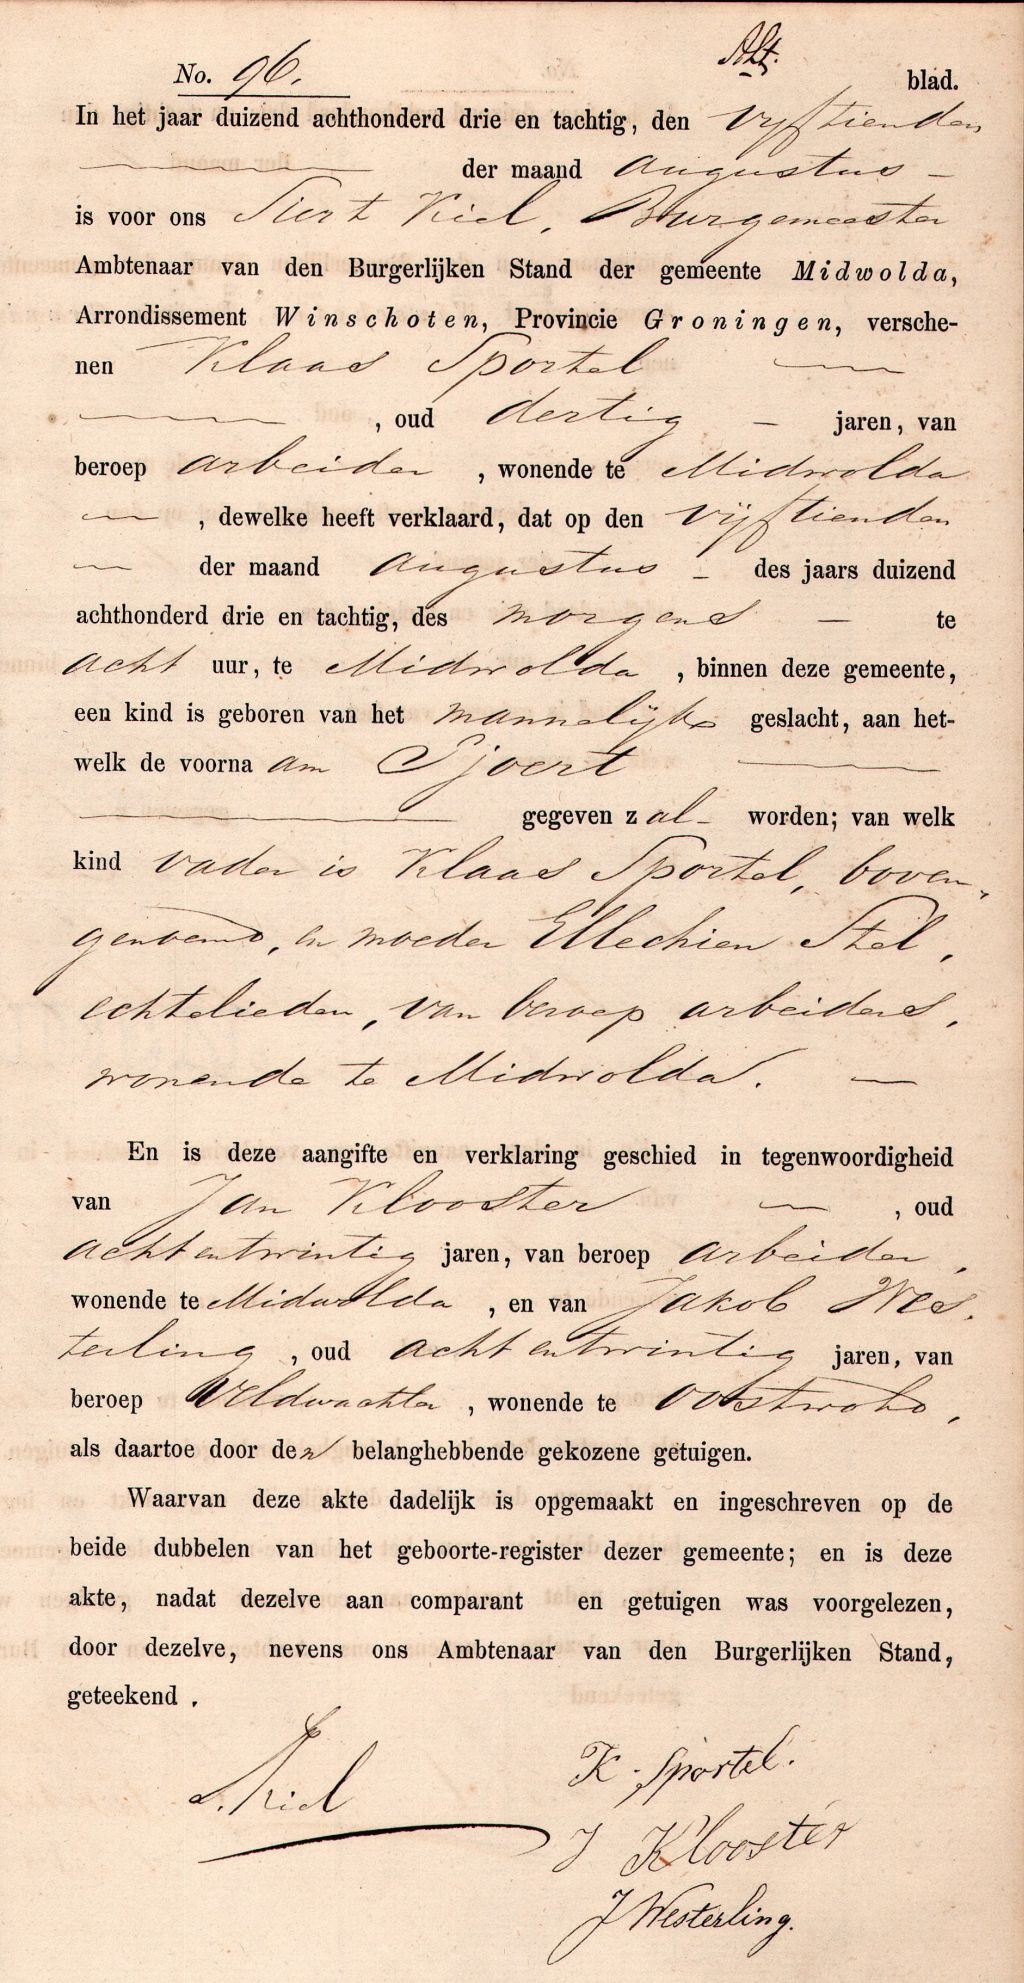 No. 96. blad.
In het jaar duizend achthonderd drie en tachtig, den vijftienden
der maand Augustus
is voor ons Siert Kiel, Burgemeester
Ambtenaar van den Burgerlijken Stand der gemeente Midwolda,
Arrondissement Winschoten, Provincie Groningen, versche-
nen Klaas Sportel
, oud dertig jaren, van
beroep arbeider, wonende te Midwolda
, dewelke heeft verklaard, dat op den vijftienden
der maand Augustus des jaars duizend
achthonderd drie en tachtig, des morgens te
acht uur, te Midwolda, binnen deze gemeente,
een kind is geboren van het mannelijk geslacht, aan het-
welk de voornaam Sjoert
gegeven zal worden; van welk
kind vader is Klaas Sportel, boven-
genoemd, en moeder Ellechien Stel,
echtelieden, van beroep arbeiders,
wonende te Midwolda.
En is deze aangifte en verklaring geschied in tegenwoordigheid
van Jan Klooster, oud
achtentwintig jaren, van beroep arbeider,
wonende te Midwolda, en van Jakob Wes-
terling, oud achtentwintig jaren, van
beroep Veldwachter, wonende te Oostwold,
als daartoe door den belanghebbende gekozene getuigen.
Waarvan deze akte dadelijk is opgemaakt en ingeschreven op de
beide dubbelen van het geboorte-register dezer gemeente; en is deze
akte, nadat dezelve aan comparant en getuigen was voorgelezen,
door dezelve, nevens ons Ambtenaar van den Burgerlijken Stand,
geteekend.
S. Kiel
K. Sportel.
J Klooster
J Westerling.